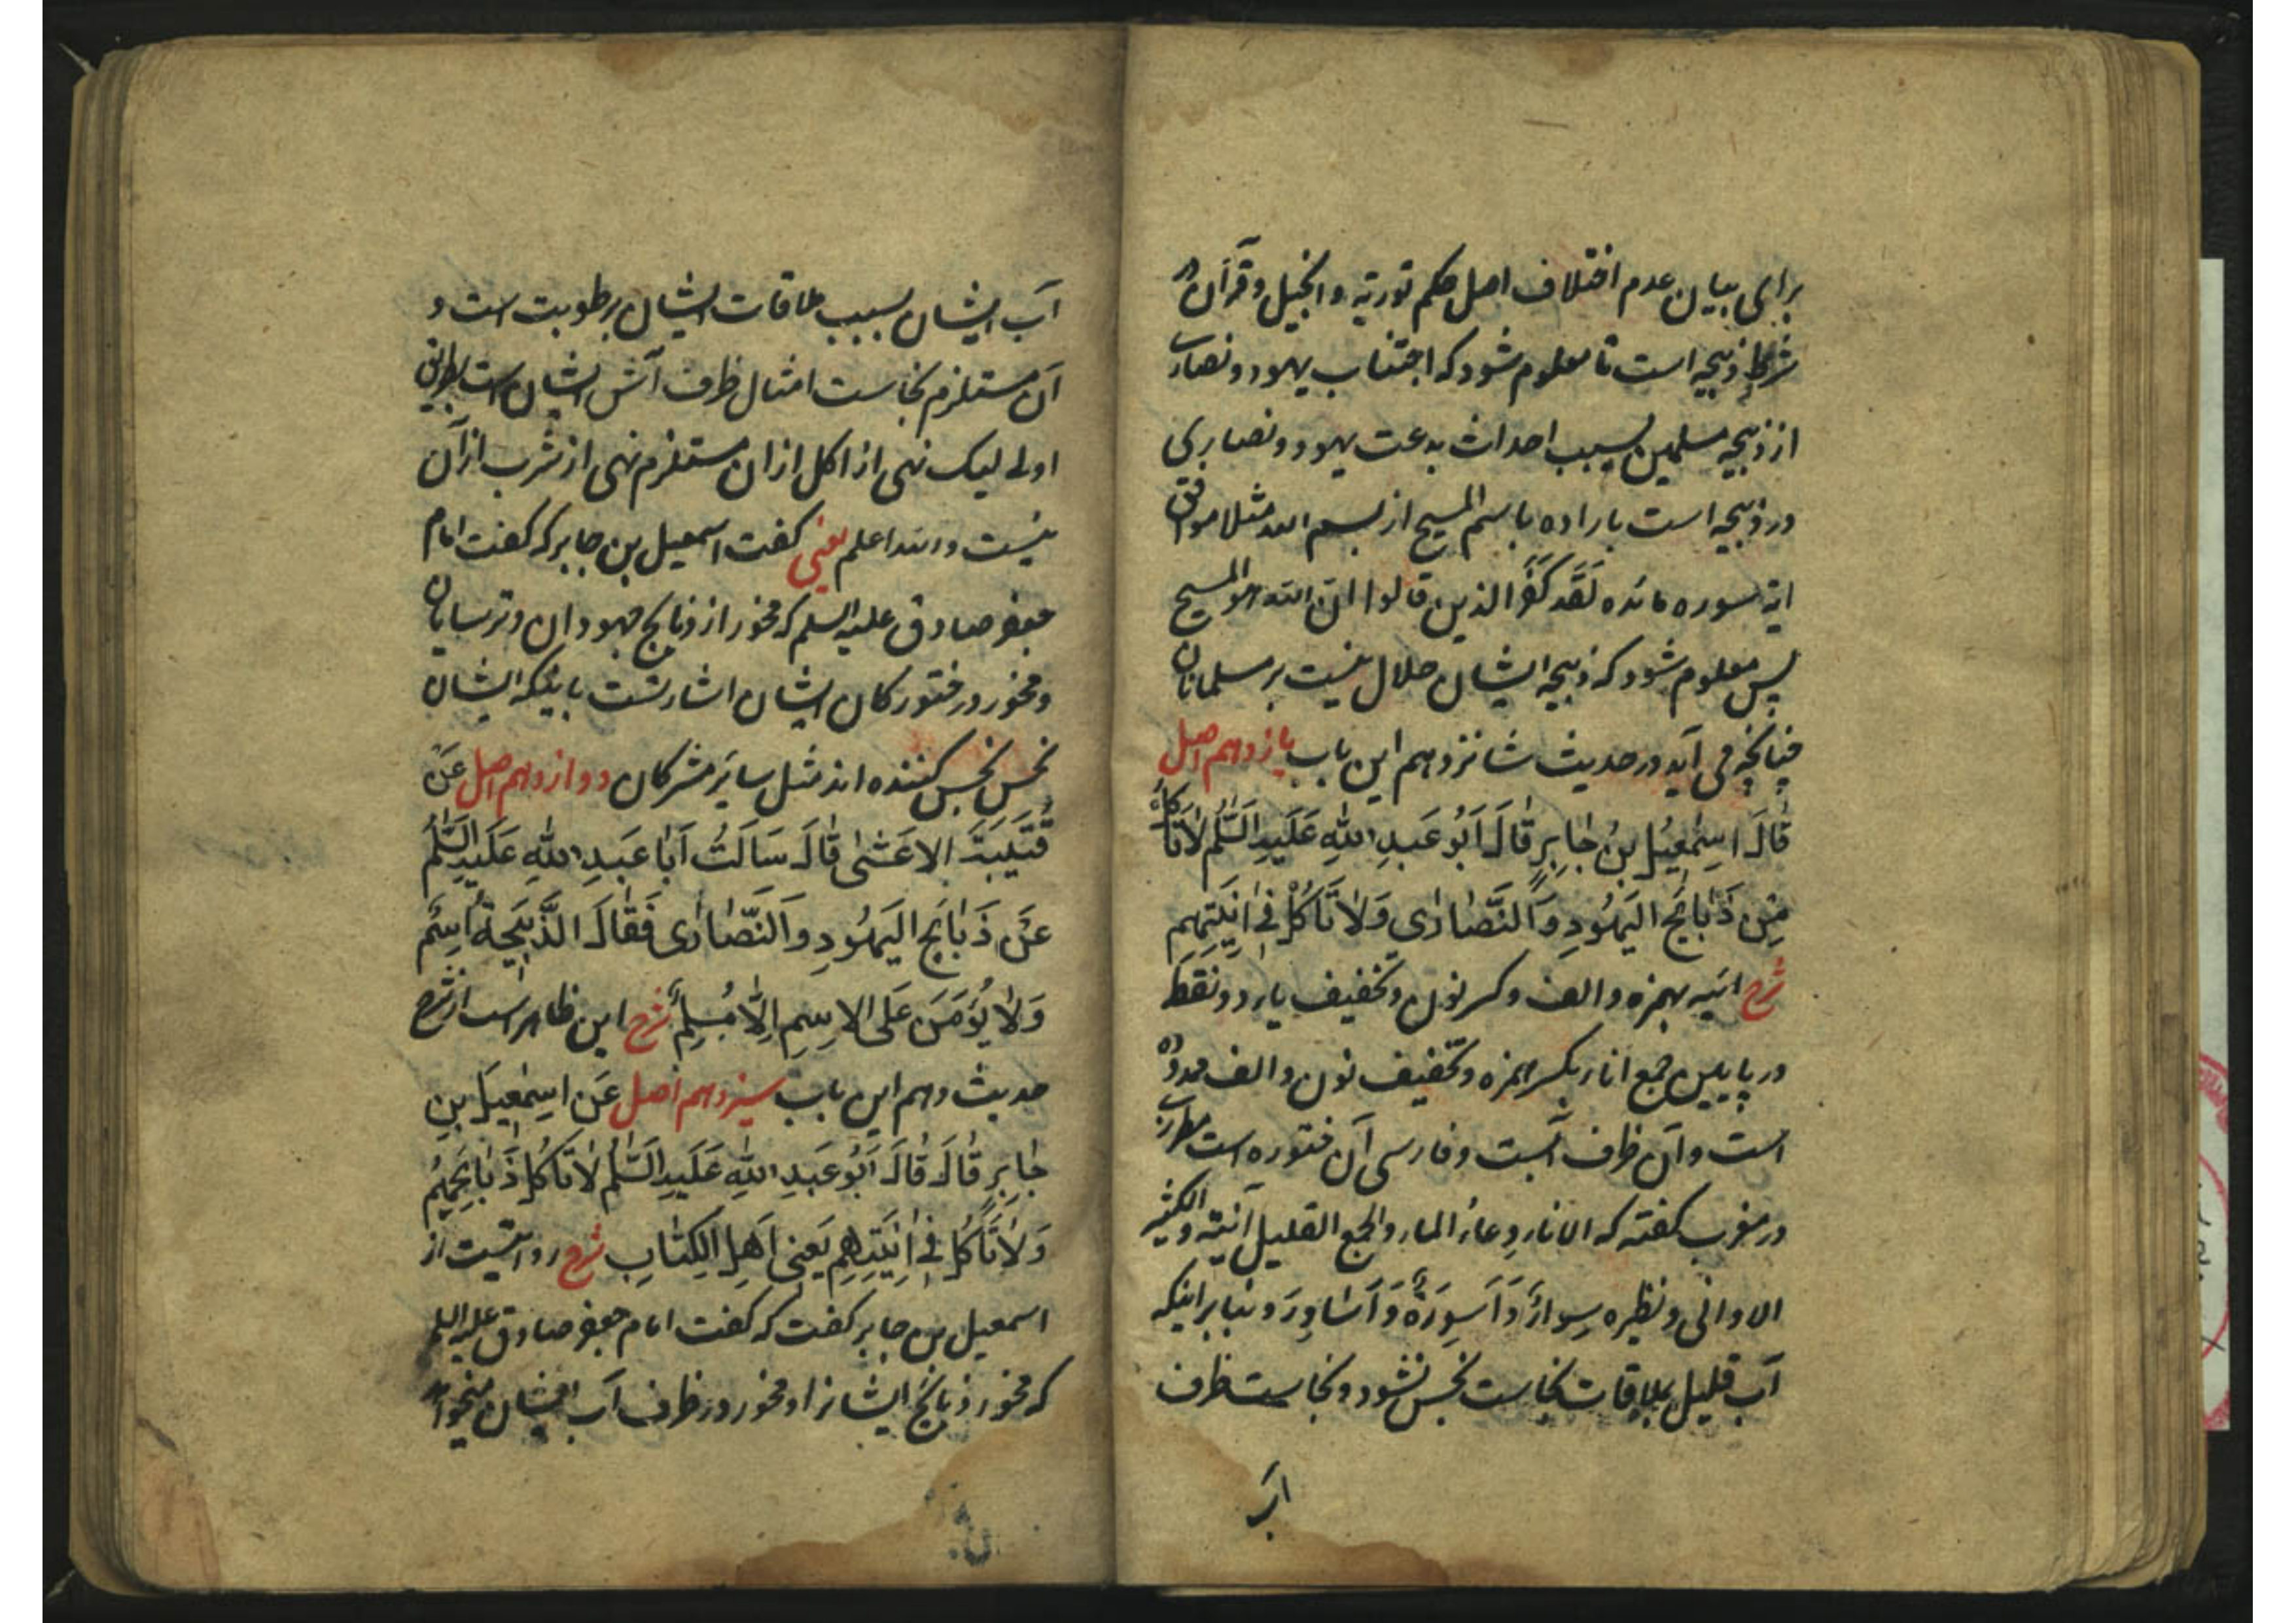 برای بیان عدم اختلاف اصل حکم توریة و انجیل و قرآن در
شرط ذبیحه است تا معلوم شود که اجتناب یهود و نصاری
از ذبیحه مسلمین بسبب احداث بدعت یهود و نصاری
در ذبیحه است باراده باسم المسیح از بسم الله مثلا موافق
ایه سوره مائده لَقَد کَفَرَ الذین قالوا انّ الله هو المسیح
پس معلوم شود که ذبیحه ایشان حلال نیست بر مسلمانان
چنانچه می آید در حدیث شانزدهم این باب یازدهم اصل
قَالَ اِسمٰعیلُ بنُ جٰابِرٍ قٰالَ اَبُو عَبدِ اللهِ عَلَیهِ السَّلٰم لاٰتَأکُل
مِن ذَبٰائِحِ الیَهُودِ وَالنَّصٰارٰی وَلاٰتَأکُل فِی اٰنِیَتِهِم
شرح انیه بهمزه و الف و کسر نون و تخفیف یاء دو نقطه
در پایین جمع اناء بکسر همزه و تخفیف نون و الف ممدوده
است و آن ظرف آبست و فارسی آن خنوره است مطرزی
در مغرب کفته که الاناء وعاء الماء والجمع القلیل آنیة والکثیر
الاوانی و نظیره سِوار وَاَسوِرَة وَاَسَاوِرَ و بنابر اینکه
آب قلیل بملاقات نجاست نجس نشود و نجاست ظرف
اب
آب ایشان بسبب ملاقات ایشان برطوبت است و
آن مستلزم نجاست امثال ظرف آتش ایشان است بطریق
اولی لیک نهی از اکل از ان مستلزم نهی از شرب از آن
نیست و الله اعلم یعنی کفت اسمعیل بن جابر که کفت امام
جعفر صادق علیه السلم که مخور از ذبایح جهودان و ترسایان
و مخور در خنورکان ایشان اشارتست باینکه ایشان
نجس نجس کننده اند مثل سایر مشرکان دوازدهم اصل عَن
قُتَیبَةَ الاعَشیٰ قٰالَ سَاَلتُ اَبٰا عَبدِ اللهِ عَلَیهِ السَّلٰم
عَن ذَبٰایِحِ الیَهُودِ وَالنَّصٰارٰی فَقٰالَ الذَّبیحَةُ اِسمٌ
وَلاٰ یُؤمَنُ عَلَی الاِسمِ اِلّا مُسلِمٌ شرح این ظاهر است از شرح
حدیث دهم این باب سیزدهم اصل عَن اِسمٰعیلَ بنِ
جٰابِرٍ قٰالَ قٰالَ اَبُو عَبدِ اللهِ عَلَیهِ السَّلٰم لاٰتَأکُل ذَبٰایِحَهُم
وَلاٰ تَأکُل فِی اٰنِیَتِهِم یَعنِی اَهلَ الکِتٰابِ شرح روایتست از
اسمعیل بن جابر کفت که کفت امام جعفر صادق علیه السلم
که مخور ذبایح ایشانرا و مخور در ظرف آب ایشان میخواهد